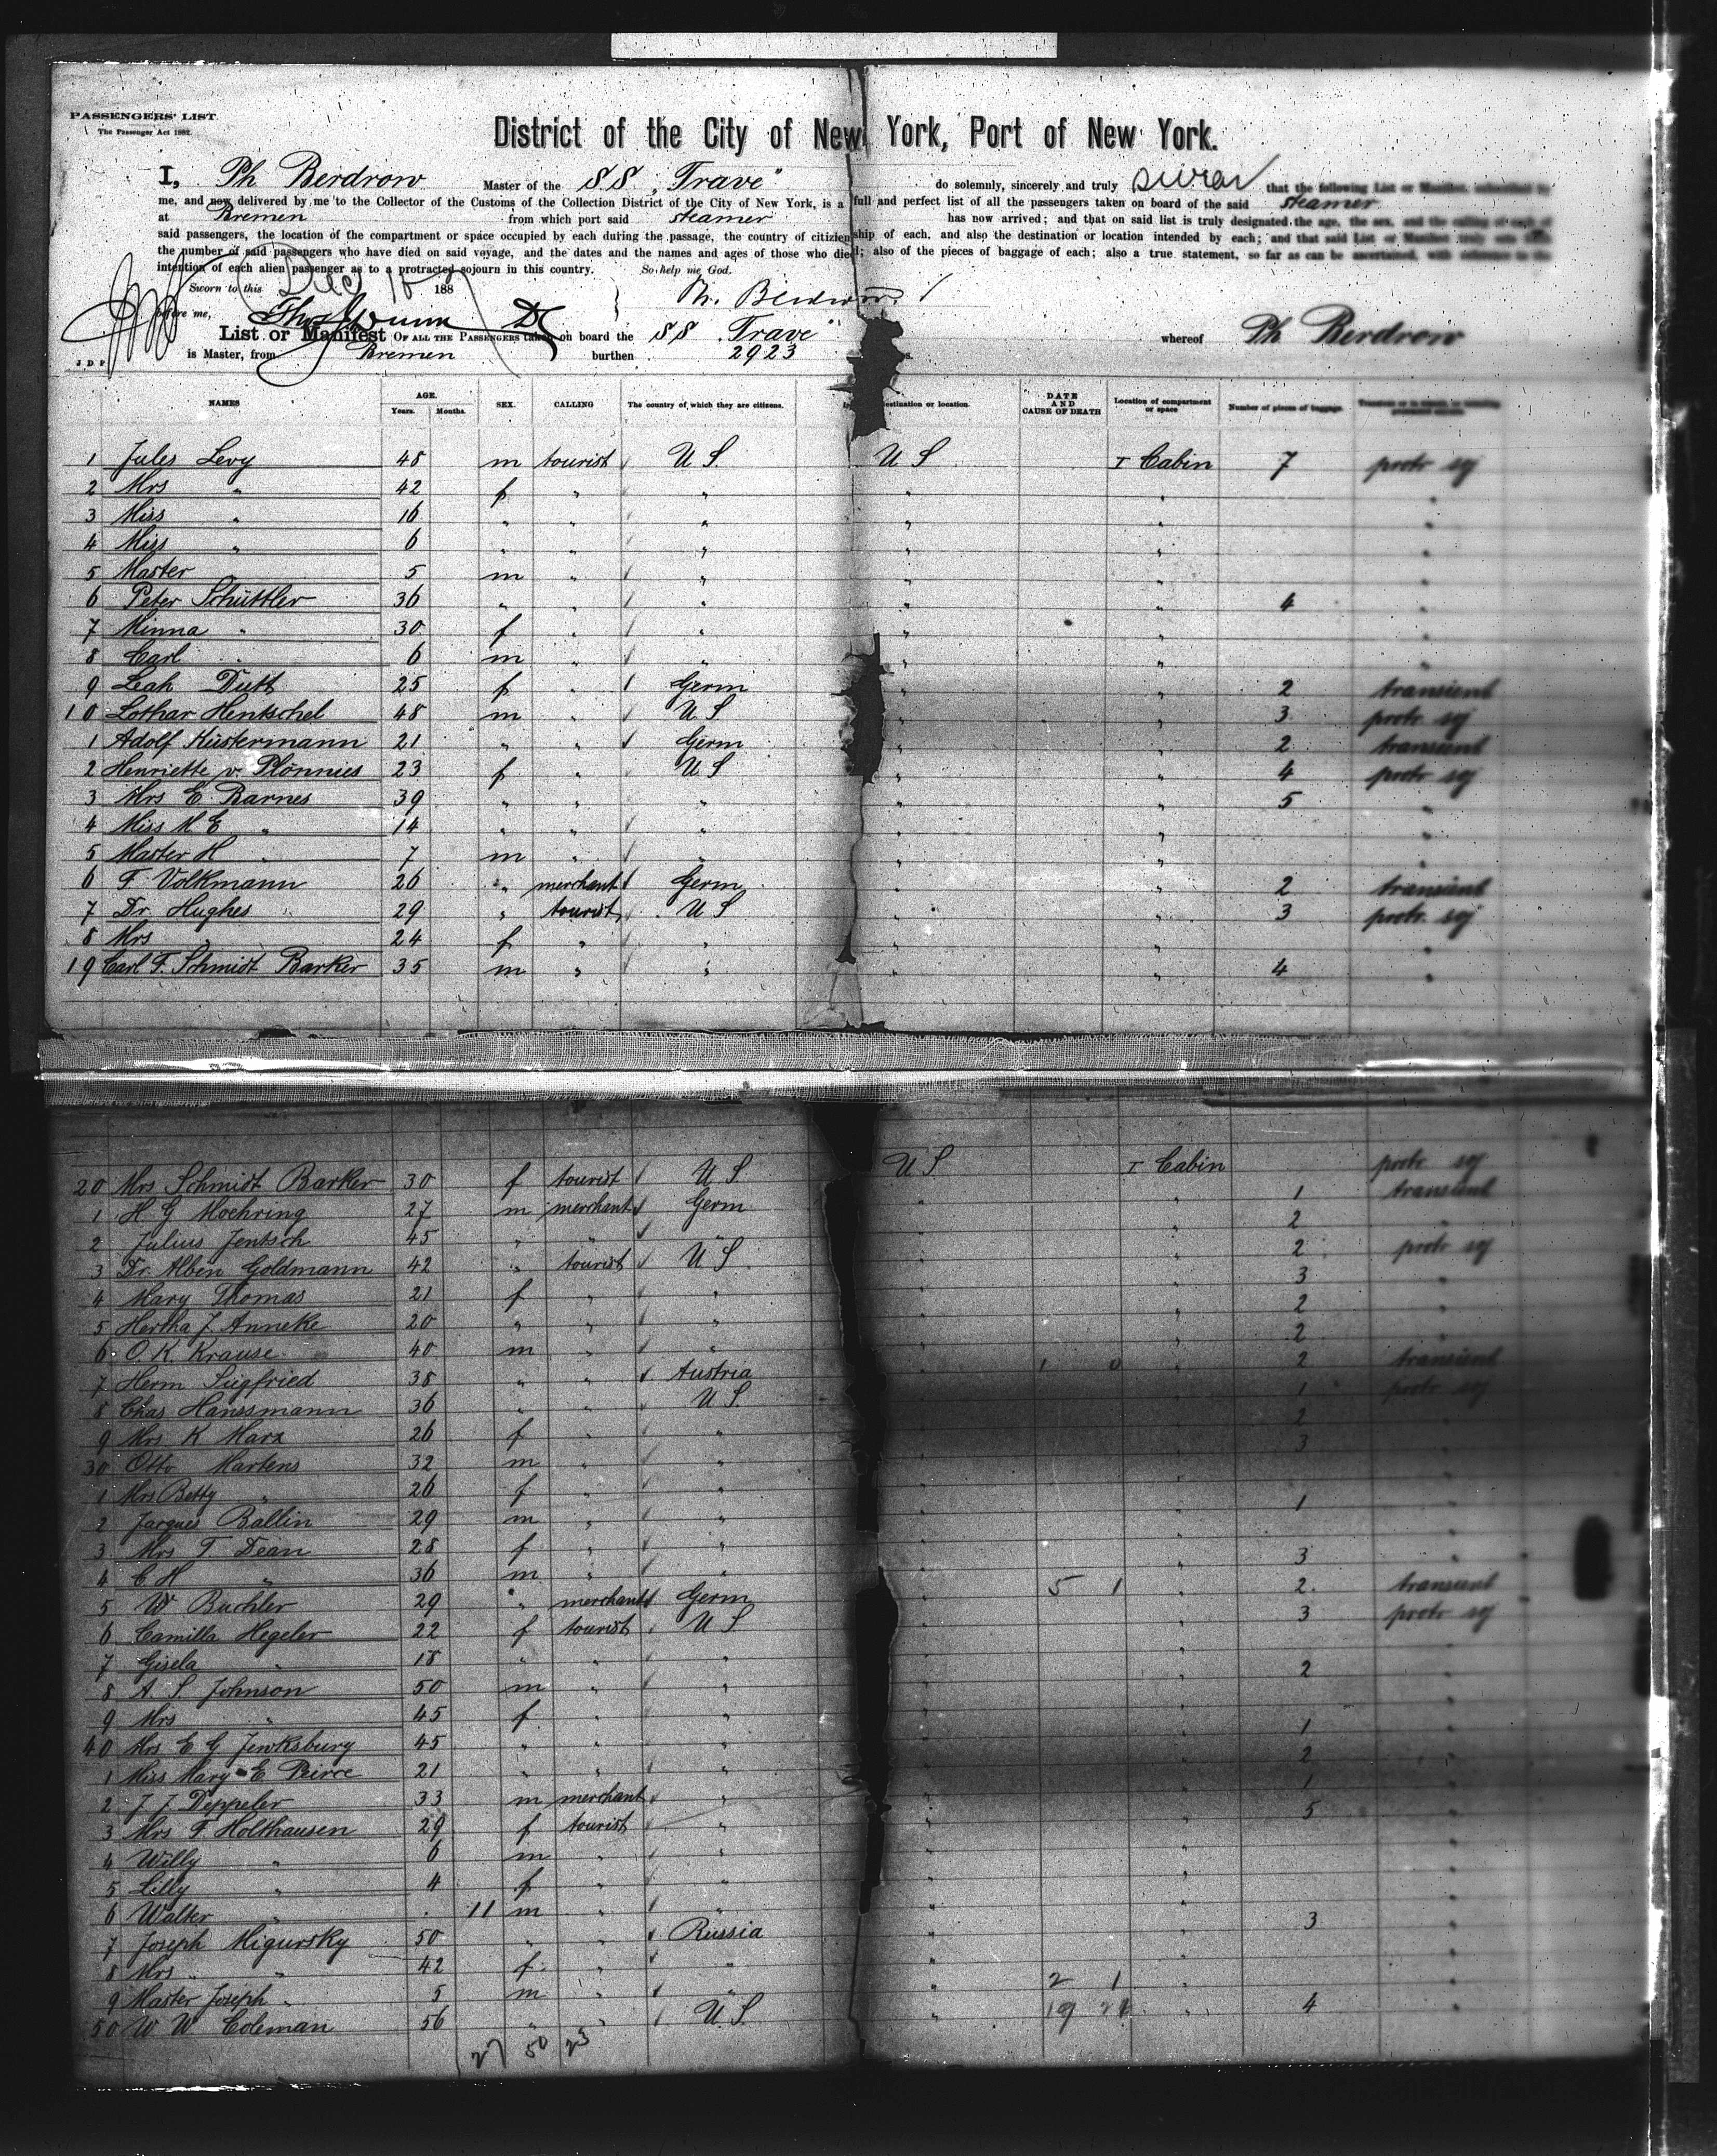 PASSENGERS' LIST.
The Passenger Act 1882.
District of the City of New York, Port of New York.
I, Ph Berdrow Master of the SS „Trave" do solemnly, sincerely and truly swear that the following List or Manifest, submitted by
me, and now delivered by me to the Collector of the Customs of the Collection District of the City of New York, is a full and perfect list of all the passengers taken on board of the said steamer
at Bremen from which port said steamer has now arrived; and that on said list is truly designated the age, the sex, and the calling of each of
said passengers, the location of the compartment or space occupied by each during the passage, the country of citizenship of each, and also the destination or location intended by each; and that said List or Manifest truly sets forth
the number of said passengers who have died on said voyage, and the dates and the names and ages of those who died; also of the pieces of baggage of each; also a true statement, so far as can be ascertained, with reference to the
intention of each alien passenger as to a protracted sojourn in this country. So help me God.
Sworn to this Dec 188
before me, Ph. Berdrow.
List or Manifest OF ALL THE PASSENGERS taken on board the SS „Trave" whereof Ph Berdrow
J D P is Master, from Bremen burthen 2923
NAMES AGE. Years. Months. SEX. CALLING The country of which they are citizens. destination or location. DATE AND CAUSE OF DEATH Location of compartment or space Number of pieces of baggage.
1 Jules Levy 48 m tourist U S. U S I Cabin 7 protr soj
2 Mrs " 42 f " " " " "
3 Miss " 16 " " " " " "
4 Miss " 6 " " " " " "
5 Master " 5 m " " " " "
6 Peter Schüttler 36 " " " " " 4 "
7 Minna " 30 f " " " " "
8 Carl " 6 m " " " " "
9 Leah Dutt 25 f " Germ " " 2 transient
10 Lothar Hentschel 48 m " U S " " 3 protr soj
1 Adolf Küstermann 21 " " Germ " " 2 transient
2 Henriette v. Plönnies 23 f " U S " " 4 protr soj
3 Mrs E Barnes 39 " " " " " 5 "
4 Miss M E " 14 " " " " " "
5 Master H " 7 m " " " " "
6 F. Volkmann 26 " merchant Germ " " 2 transient
7 Dr. Hughes 29 " tourist U S " " 3 protr. soj
8 Mrs " 24 f " " " " "
19 Carl F. Schmidt Barker 35 m " " " " 4 "
20 Mrs Schmidt Barker 30 f tourist U S U S. I Cabin protr soj
1 H G Moehring 27 m merchant Germ " " 1 transient
2 Julius Jentsch 45 " " " " " 2 "
3 Dr. Alben Goldmann 42 " tourist U S. " " 2 protr soj
4 Mary Thomas 21 f " " " " 3 "
5 Hertha J. Anneke 20 " " " " " 2 "
6 O. K. Krause 40 m " " " " 2 "
7 Herm Siegfried 38 " " Austria " 1 0 " 2 transient
8 Chas Hanssmann 36 " " U S. " " 1 protr soj
9 Mrs K Marx 26 f " " " " 2 "
30 Otto Martens 32 m " " " " 3 "
1 Mrs Betty " 26 f " " " " "
2 Jacques Ballin 29 m " " " " 1 "
3 Mrs T. Dean 28 f " " " " "
4 C H " 36 m " " " " 3 "
5 W Buchler 29 " merchant Germ " 5 1 " 2. transient
6 Camilla Hegeler 22 f tourist U S " " 3 protr soj
7 Gisela " 18 " " " " " "
8 A. S. Johnson 50 m " " " " 2 "
9 Mrs " 45 f " " " " "
40 Mrs E G Jewksbury 45 " " " " " 1 "
1 Miss Mary E Peirce 21 " " " " " 2 "
2 J J Deppeler 33 m merchant " " " 1 "
3 Mrs F Holthausen 29 f tourist " " " 5 "
4 Willy " 6 m " " " " "
5 Lilly " 4 f " " " " "
6 Walter " 11 m " " " " "
7 Joseph Migursky 50 " " Russia " " 3 "
8 Mrs " " 42 f " " " " "
9 Master Joseph " 5 m " " " 2 1 " "
50 W W Coleman 56 " " U. S. " 19 21 " 4 "
27 50 23